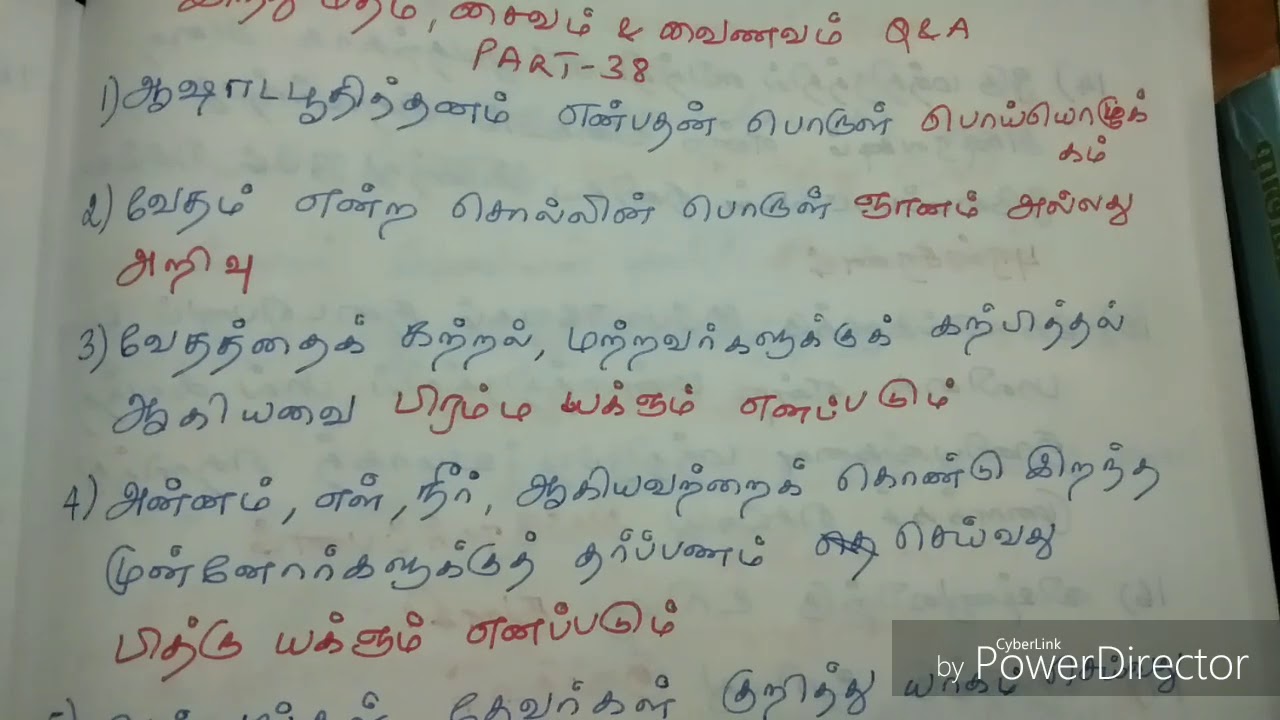 மதம், சைவம் & வைணவம் Q&A
PART-38
1) ஆஷாடபூதித்தனம் என்பதன் பொருள் பொய்யொழுக்
கம்
2) வேதம் என்ற சொல்லின் பொருள் ஞானம் அல்லது
அறிவு
3) வேதத்தைக் கற்றல், மற்றவர்களுக்குக் கற்பித்தல்
ஆகியவை பிரம்ம யக்ஞம் எனப்படும்
4) அன்னம், எள், நீர், ஆகியவற்றைக் கொண்டு இறந்த
முன்னோர்களுக்குத் தர்ப்பணம் செய்வது
பித்ரு யக்ஞம் எனப்படும்
தேவர்கள் குறித்து யாகம்
CyberLink
by PowerDirector